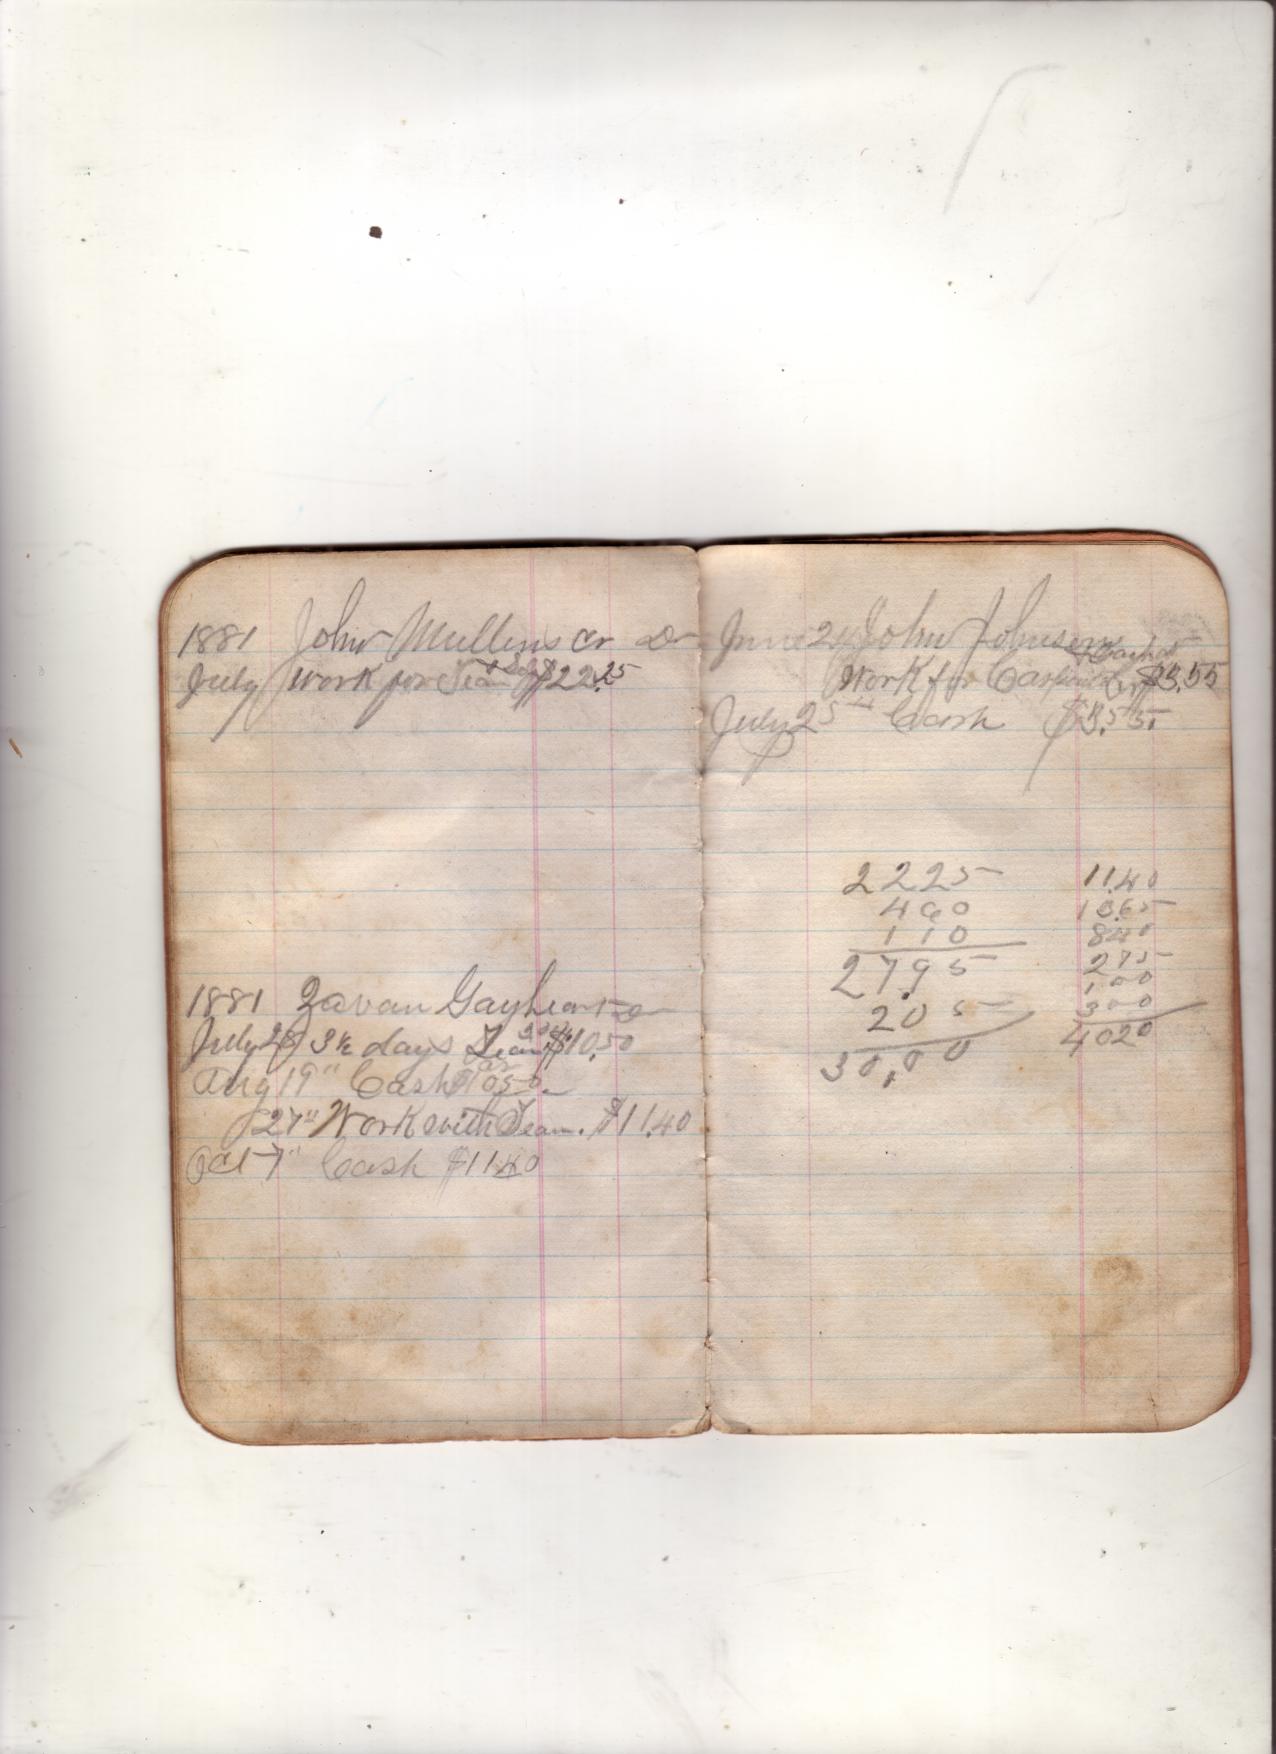 1881 John Mullins Cr Dr
July Work for Team & Self $22.25
1881 Zavan Gayheart
July 28 3½ days Team $10.50
Aug 19" Cash 1050
27" Work with Team. $11.40
Oct 7" Cash $11.40
June 24 John Johnson
Work for $3.55
July 25 Cash $3.55
2225
460
110
2795
205
30,00
11.40
13.65
840
275
100
300
4020